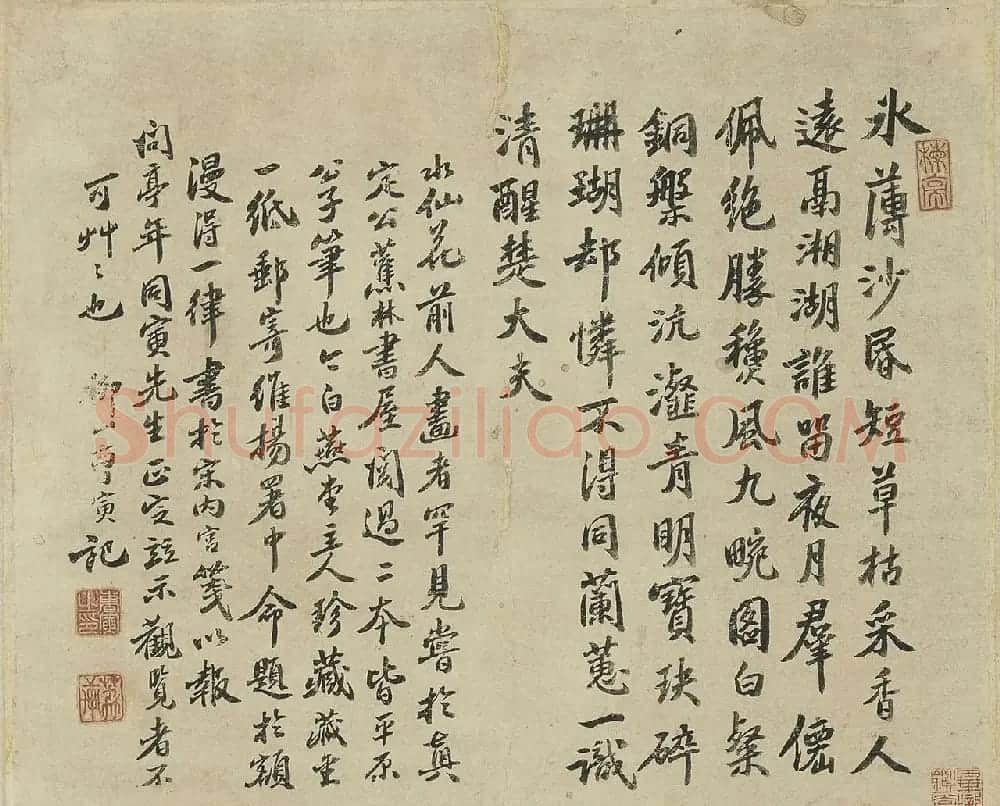 氷薄沙昏短草枯采香人
遠鬲湘湖誰留夜月羣僊
佩絶勝穠風九畹圖白粲
銅槃傾沆瀣青明寶玦碎
珊瑚却憐不得同蘭蕙一識
清醒楚大夫
水仙花前人畫者罕見嘗於真
定公蕉林書屋閱過二本皆平原
公子筆也今白燕堂主人珍藏
一紙郵寄維揚署中命題於額
漫得一律書於宋內宫箋以報
同寅先生正定誌示觀覽者不
可艸〻也 寅記
Shufaziliao.COM